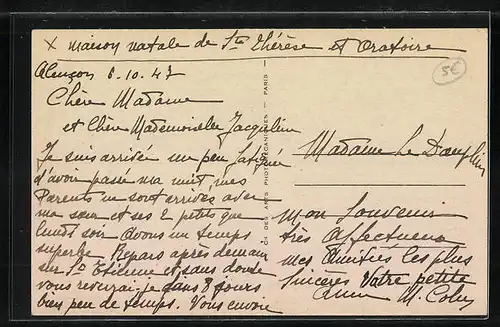 x maison natale de Ste Thérèse et Oratoire
5€
Alençon 6.10.47
Chère Madame
et Chère Mademoiselle Jacqueline
Je suis arrivée un peu fatiguée
d'avoir passée ma nuit, mes
Parents ne sont arrivés avec
ma sœur et ses 2 petits que
lundi soir avons un temps
superbe Repars après demain
sur St Etienne et sans doute
vous reverrai-je dans 8 jours
bien peu de temps. Vous envoie
Madame Le
mon Souvenir
très Affectueux
mes Amitiés les plus
Sincères Votre petite
amie M.
CIE DES ARTS PHOTOMÉCANIQUES — PARIS